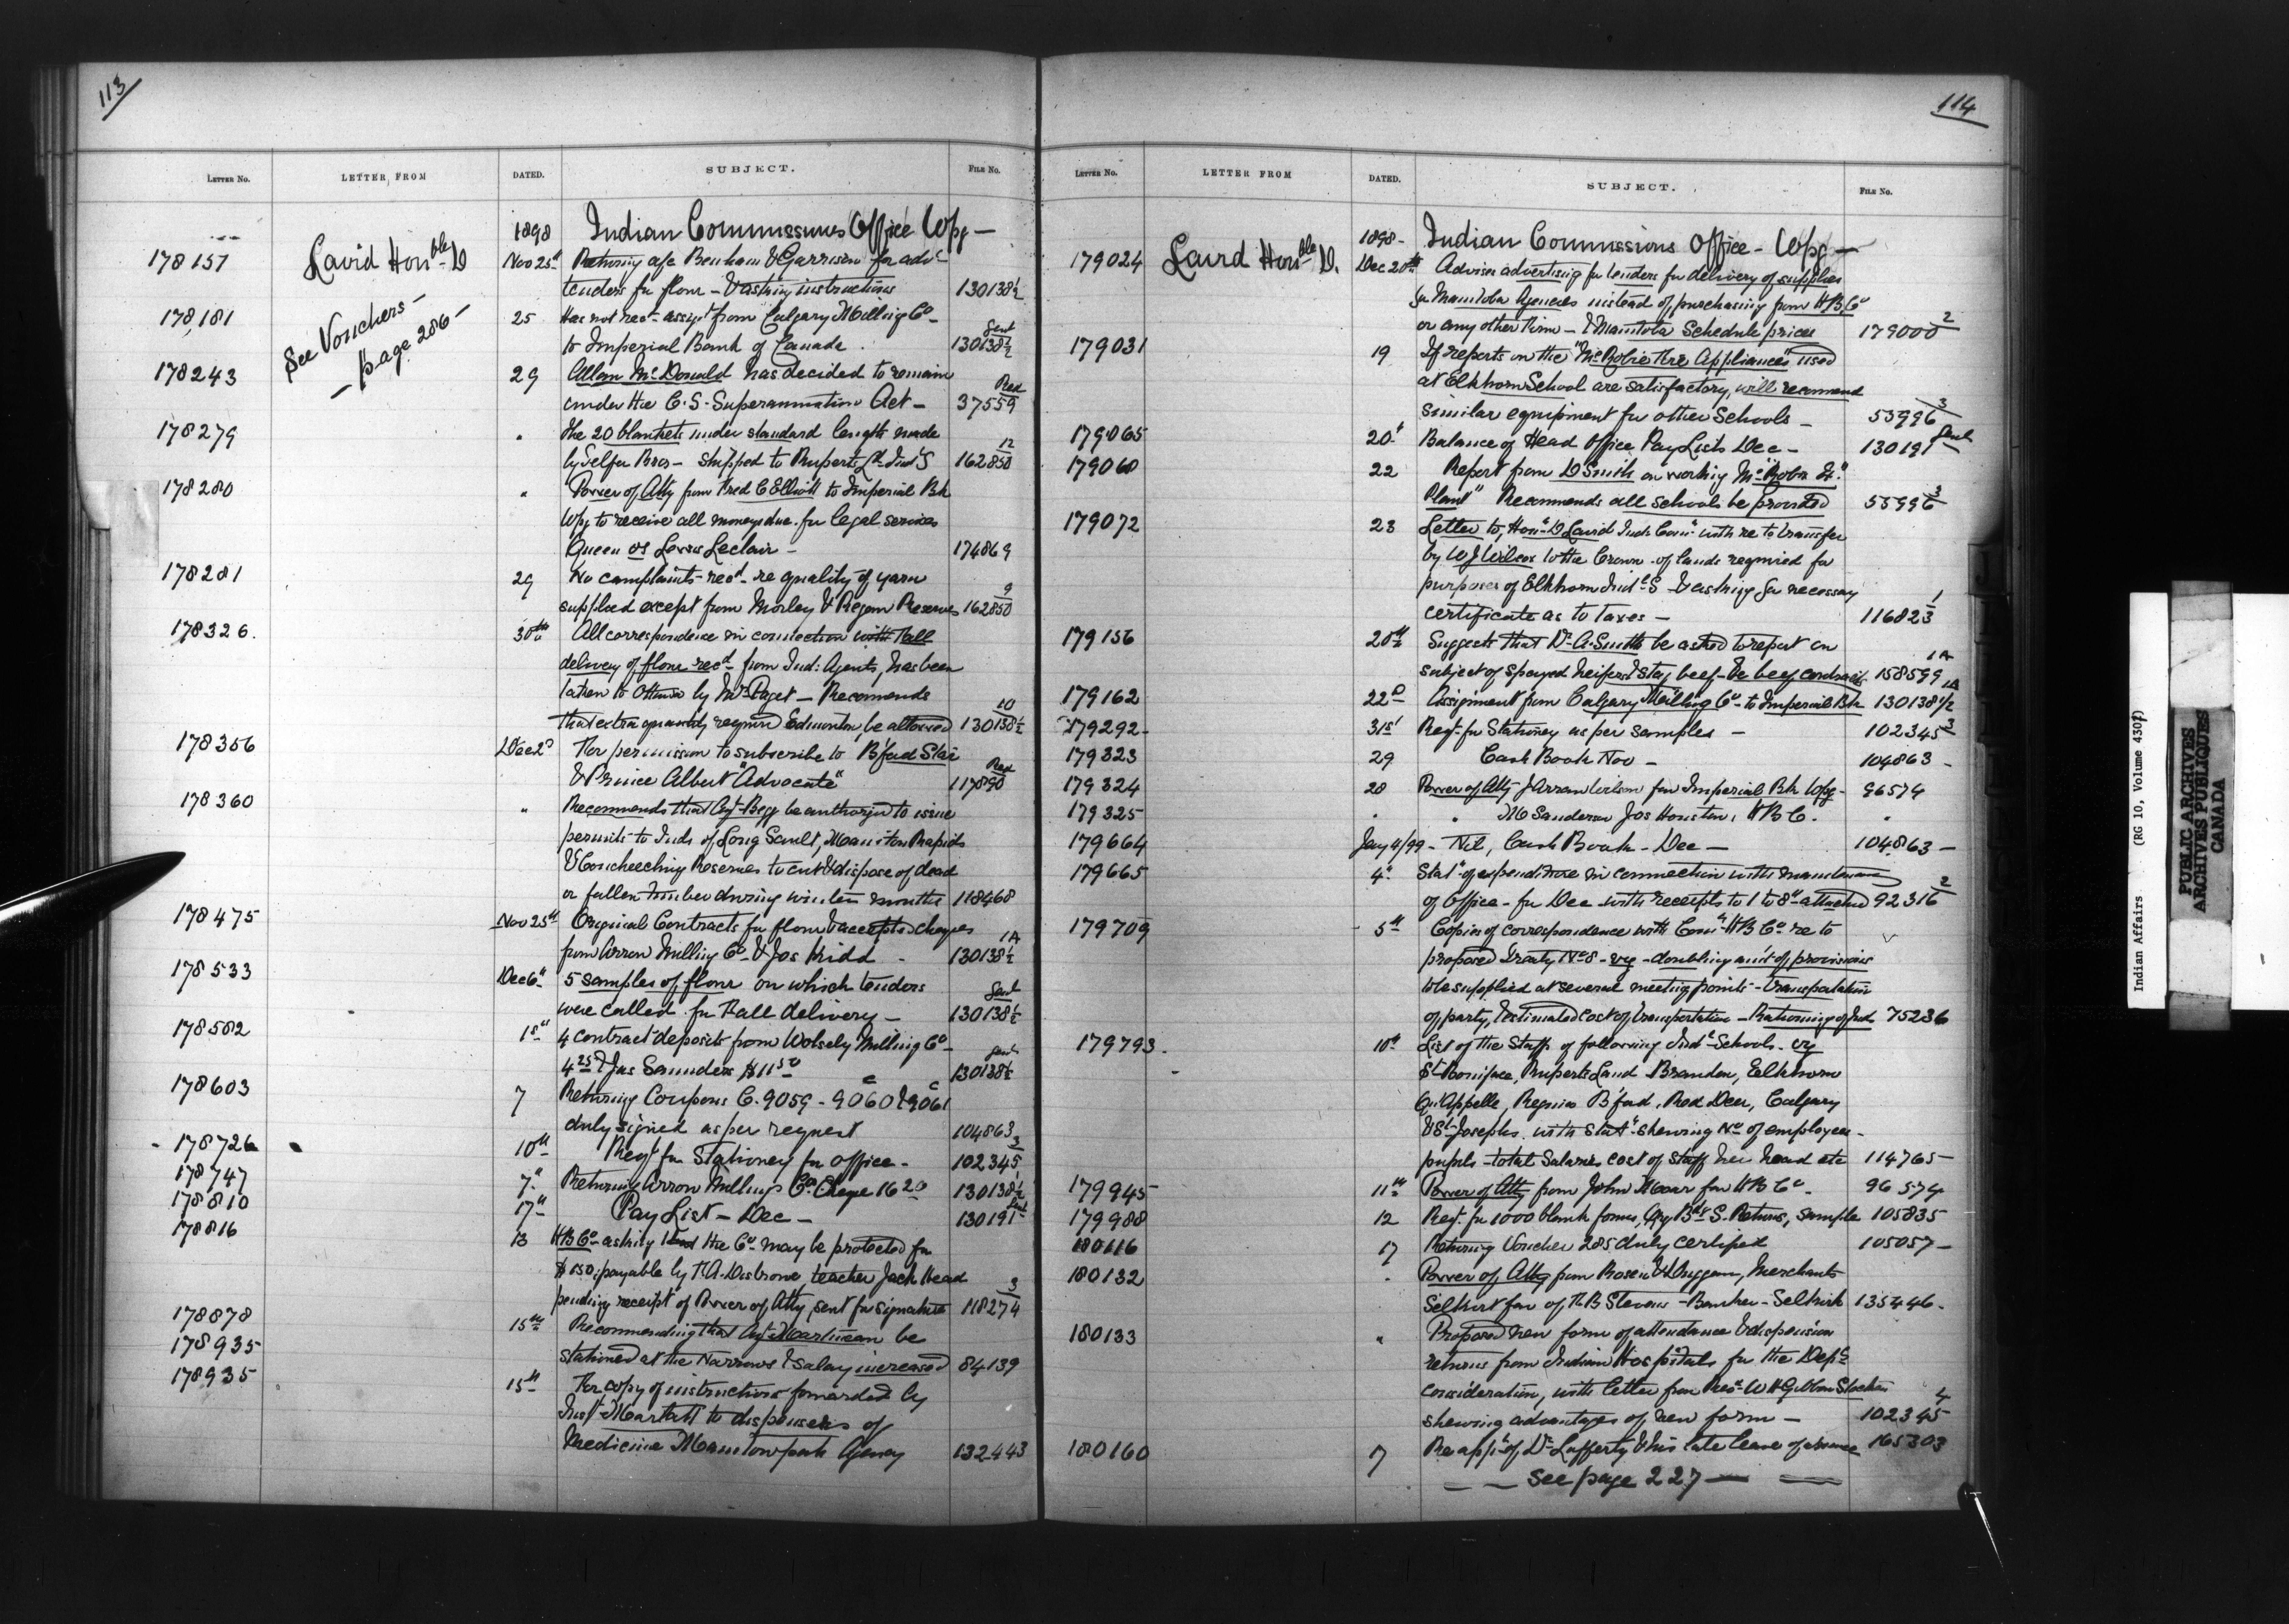 113
LETTER NO. LETTER FROM DATED. SUBJECT. FILE NO.
1898 Indian Commissioners Office Wpg —
178157 Laird Honble D Nov 25th Returning a/c Benham & Garrison for advg
tenders for flour — & asking instructions 130138½
See Vouchers —
— page 286 —
178,181 25 Has not recd assigt from Calgary Milling Co —
Sent
to Imperial Bank of Canada. 130138½
178243 29 Allan McDonald has decided to remain
under the C.S. Superannuation Act — 37559
178279 " The 20 blankets under standard length made
by Telfer Bros — shipped to Ruperts Ld Ind'S 162850 12
178280 " Power of Atty from Fred C Elliott to Imperial Bk
Wpg to receive all moneys due for legal services
Queen vs Leclair — 174869
178281 29 No complaints recd re quality of yarn
supplied except from Morley & Piegan Reserves 162850 9
178326. 30th All correspondence in connection with Fall
delivery of flour recd from Ind: Agents, has been
taken to Ottawa by Mr Paget — Recommends
that extra quantity required Edmonton be allowed 130138½ 10
178356 Dec 2d For permission to subscribe to B'ford Star
& Prince Albert "Advocate" 117890
178360 " Recommends that Agt Begg be authorized to issue
permits to Inds of Long Sault, Manitou Rapids
& Coucheeching Reserves to cut & dispose of dead
or fallen timber during winter months 118468
178475 Nov 25th Original Contracts for flour & accepted cheques
from Arrow Milling Co & Jos Kidd — 130138½ 1A
178533 Dec 6th 5 samples of flour on which tenders
Sent
were called for Fall delivery — 130138½
178582 1st 4 contract deposits from Wolsely Milling Co —
Sent
& Jas Saunders $11 50 130138½
178603 7 Returning Coupons C. 9059 - 9060 & 9061
duly signed as per request 104863
178726 10th Reqt for Stationery for office — 102345 3
178747 7th Returning Arrow Milling Co Cheque 16 20 130138½
178810 17th Pay List — Dec — 130191 Sent
178816 13 HB Co asking that the Co may be protected for
$150, payable by R.A. Disbrowe, teacher Jack Head
pending receipt of Power of Atty sent for signature 118274 3
178878 15th Recommending that Agt Martineau be
178935 stationed at the Narrows & salary increased 84139
178935 15th For copy of instructions forwarded by
Inspt Marlatt to dispensers of
Medicine Manitowpah Agency 132443
114
LETTER NO. LETTER FROM DATED. SUBJECT. FILE NO.
1898 — Indian Commissions Office — Wpg —
179024 Laird Honble D. Dec 20th Advises advertising for tenders for delivery of supplies
for Manitoba Agencies instead of purchasing from HB Co
or any other firm — & Manitoba Schedule prices 179000 2
179031 19 If reports on the "McRobie Fire Appliances" used
at Elkhorn School are satisfactory, will recommend
similar equipment for other Schools — 53996 3
179065 20th Balance of Head Office Pay Lists Dec — 130191 Sent
179068 22 Report from D Smith on working "McRobie Fr.
Plant" Recommends all schools be provided 53996 3
179072 23 Letter to, Hon D Laird Ind Comr with re to transfer
by W J Wilcox to the Crown of lands required for
purposes of Elkhorn Indl S & asking for necessary
certificate as to taxes — 116823 1
179156 20th Suggests that Dr A. Smith be asked to report on
subject of spayed heifer & stag beef — re beef contracts 158599 1A
179162 22d Assignment from Calgary Milling Co — to Imperial Bk 130138½ 1A
179292 — 31st Reqt for Stationery as per samples — 102345 3
179323 29 Cash Book Nov — 104863 —
179324 28 Power of Atty J Arran Wilson for Imperial Bk Wpg — 96574
179325 " " Mc Sanderson Jos Houston, HBC. "
179664 Jany 4/99 — Nil, Cash Book — Dec — 104863 —
179665 4th Statt of expenditure in connection with maintenance
of Office — for Dec with receipts to 1 to 8 attached 92316 2
179709 5th Copies of correspondence with Comr HB Co re to
proposed Treaty No 8 — viz — doubling amt of provisions
to be supplied at several meeting points — transportation
of party, & estimated cost of transportation — Rationing of Ind 75236
179793. 10th List of the Staffs of following Indl Schools — viz
St Boniface, Ruperts Land Brandon, Elkhorn
Qu'Appelle, Regina B'ford, Red Deer, Calgary
& St Josephs, with statt shewing No of employees —
pupils — total Salaries cost of staff per head etc 114765 —
179945 11th Power of Atty from John Moar for HB Co — 96574
179988 12 Reqt for 1000 blank forms, Qry Bdg S. Returns, sample 105835
180116 17 Returning Voucher 285 duly certified 105057 —
180132 " Power of Atty from Rosen & Duggan, Merchants
Selkirk fav of R B Stevens — Banker — Selkirk 135446 —
180133 " Proposed new form of attendance & dispension
returns from Indian Hospitals for the Depts
consideration, with letter from Rev W H Gibbon Stocken
shewing advantages of new form — 102345 4
180160 7 Re appt of Dr Lafferty & his late leave of absence 165303
— — See page 227 — —
Indian Affairs (RG 10, Volume 4307)
PUBLIC ARCHIVES
ARCHIVES PUBLIQUES
CANADA